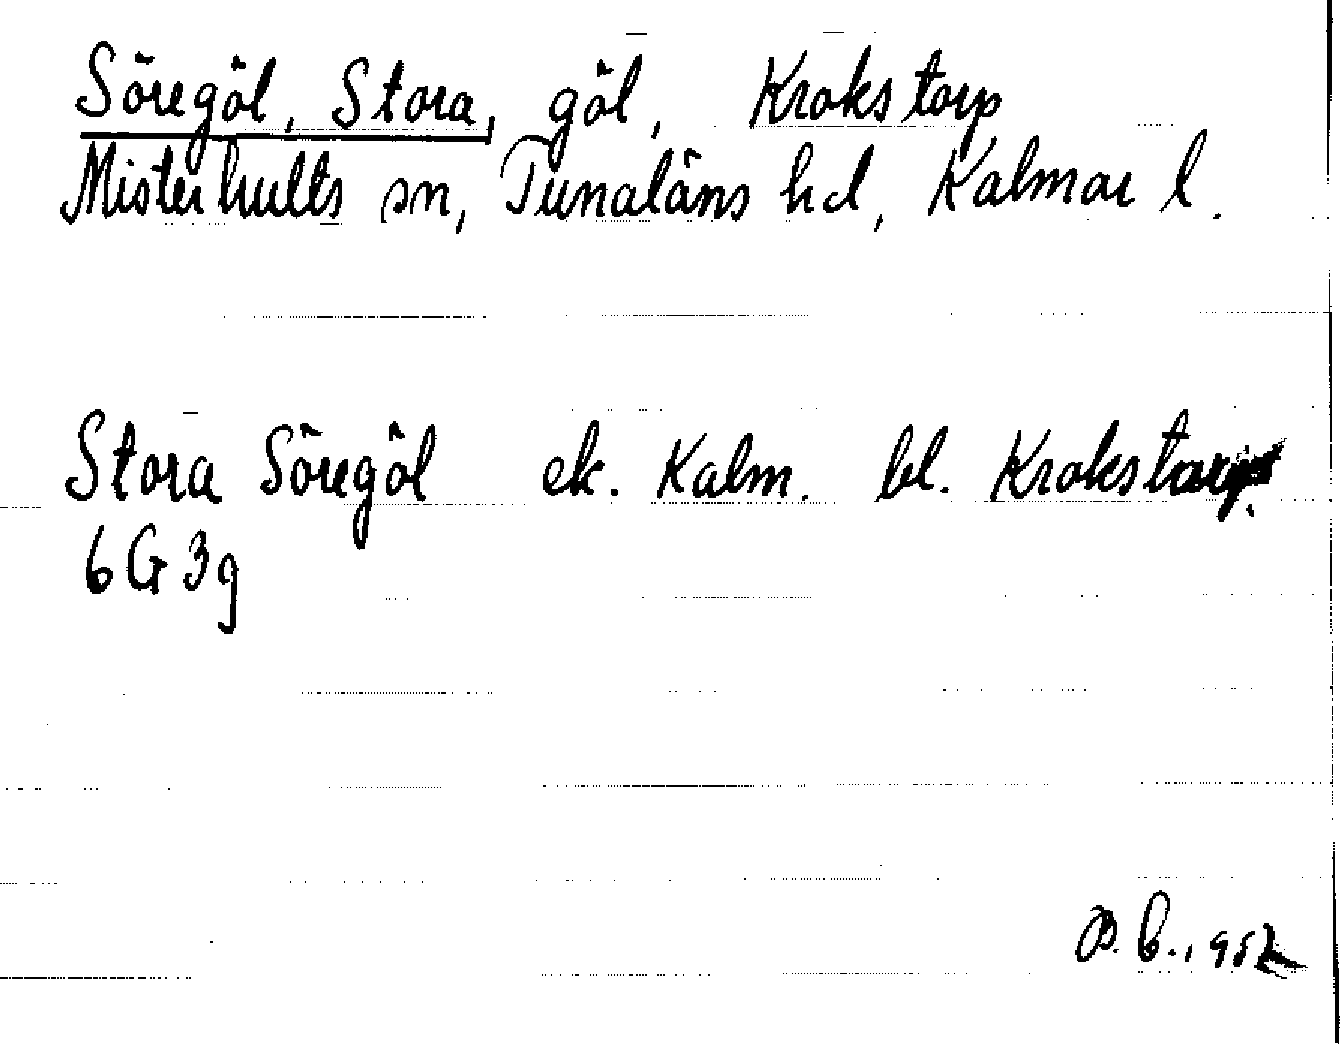 Söregöl, Stora, göl, Krokstorp
Misterhults sn, Tunaläns hd, Kalmar l.
Stora Söregöl ek. Kalm. bl. Krokstorp
6G3g